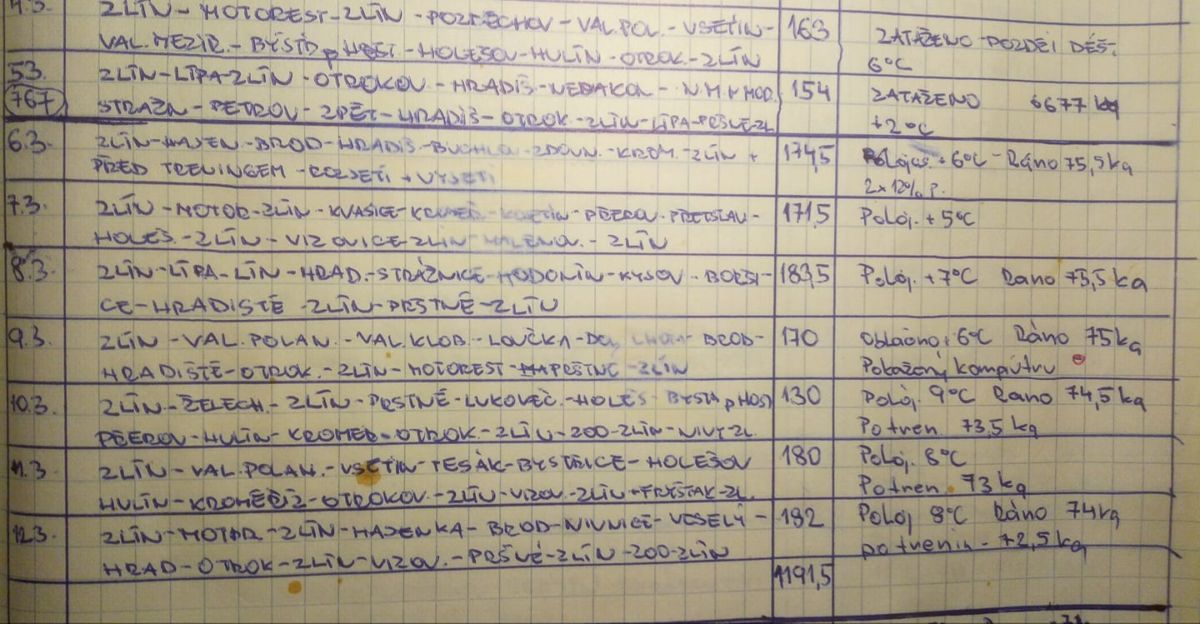 4.3. ZLÍN - MOTOREST - ZLÍN - POZDĚCHOV - VAL. POL. - VSETÍN - 163 ZATAŽENO - POZDĚJI DÉŠŤ
VAL. MEZIŘ. - BYSTŘ p HOST - HOLEŠOV - HULÍN - OTROK. - ZLÍN 6°C
5.3. ZLÍN - LÍPA - ZLÍN - OTROKOV. - HRADIŠ - NEDAKON. - N.M.h HOR. 154 ZATAŽENO 6677 km
767 STRÁŽN - PETROV - ZPĚT - HRADIŠ - OTROK. - ZLÍN - LÍPA - PRŠNÉ - ZL +2°C
6.3. ZLÍN - MAJEN. - BROD - HRADIŠ - BUCHLO. - ZDOUN. - KROM. - ZLÍN + 174,5 Poloj. + 6°C - Ráno 75,5 kg
PŘED TRENINGEM - ROZJETÍ + VYJETÍ 2x12% p.
7.3. ZLÍN - MOTOR - ZLÍN - KVASICE - KROMĚŘ - - PŘEROV - - 171,5 Poloj. + 5°C
HOLEŠ. - ZLÍN - VIZOVICE - ZLÍN - MALENOV. - ZLÍN
8.3. ZLÍN - LÍPA - LÍN - HRAD. - STRÁŽNICE - HODONÍN - KYJOV - BORŠI - 183,5 Poloj. + 7°C Ráno 73,5 kg
CE - HRADIŠTĚ - ZLÍN - PRŠTNÉ - ZLÍN
9.3. ZLÍN - VAL. POLAN. - VAL KLOB - LOUČKA - DOL. LHOTA - BROD - 170 Oblačno + 6°C Ráno 75 kg
HRADIŠTĚ - OTROK. - ZLÍN - MOTOREST - - ZLÍN Pokažený kompútru
10.3. ZLÍN - ŽELECH. - ZLÍN - PRŠTNÉ - LUKOVEČ. - HOLEŠ - BYSTŘ p HOST 130 Poloj. 9°C Ráno 74,5 kg
PŘEROV - HULÍN - KROMĚŘ - OTROK. - ZLÍN - ZOO - ZLÍN - NIVY ZL. Po tren. 73,5 kg
11.3 ZLÍN - VAL. POLAN. - VSETÍN - TESÁK - BYSTŘICE - HOLEŠOV 180 Poloj. 8°C
HULÍN - KROMĚŘÍŽ - OTROKOV. - ZLÍN - VIZOV. - ZLÍN - FRYŠTÁK - ZL. Po tren. 73 kg
12.3. ZLÍN - MOTOR - ZLÍN - MAJENKA - BROD - NIVNICE - VESELÍ - 182 Poloj 8°C Ráno 74 kg
HRAD - OTROK - ZLÍN - VIZOV. - PRŠNÉ - ZLÍN - ZOO - ZLÍN po trenin. - 72,5 kg
1191,5